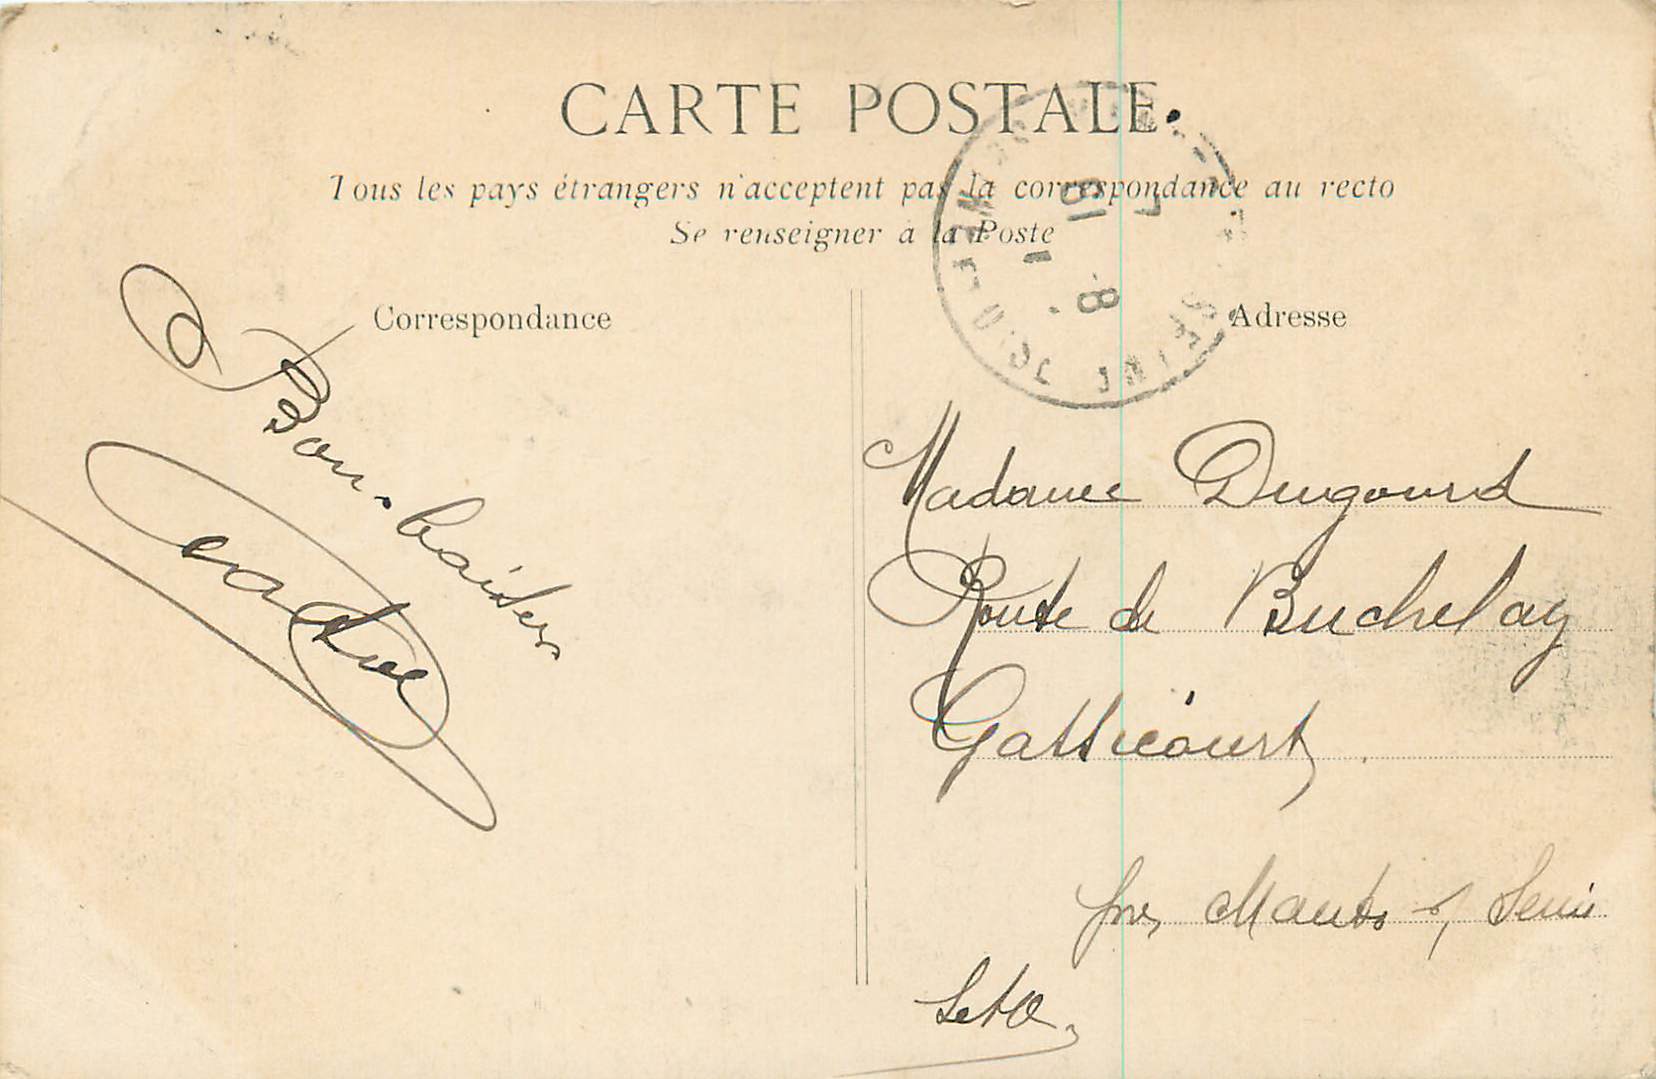 CARTE POSTALE.
Tous les pays étrangers n'acceptent pas la correspondance au recto
Se renseigner à la Poste
Correspondance
Bons baisers
Adresse
Madame Dugourd
Route de Buchelay
Gassicourt
près Mantes s/ Seine
S et O